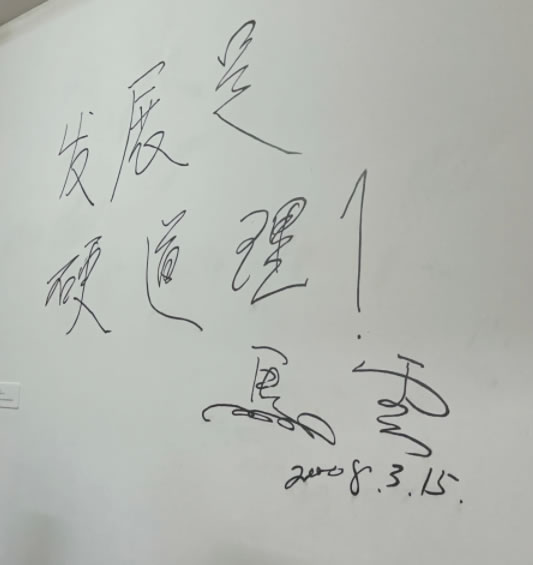 发展是
硬道理！
馬雲
2008.3.15.